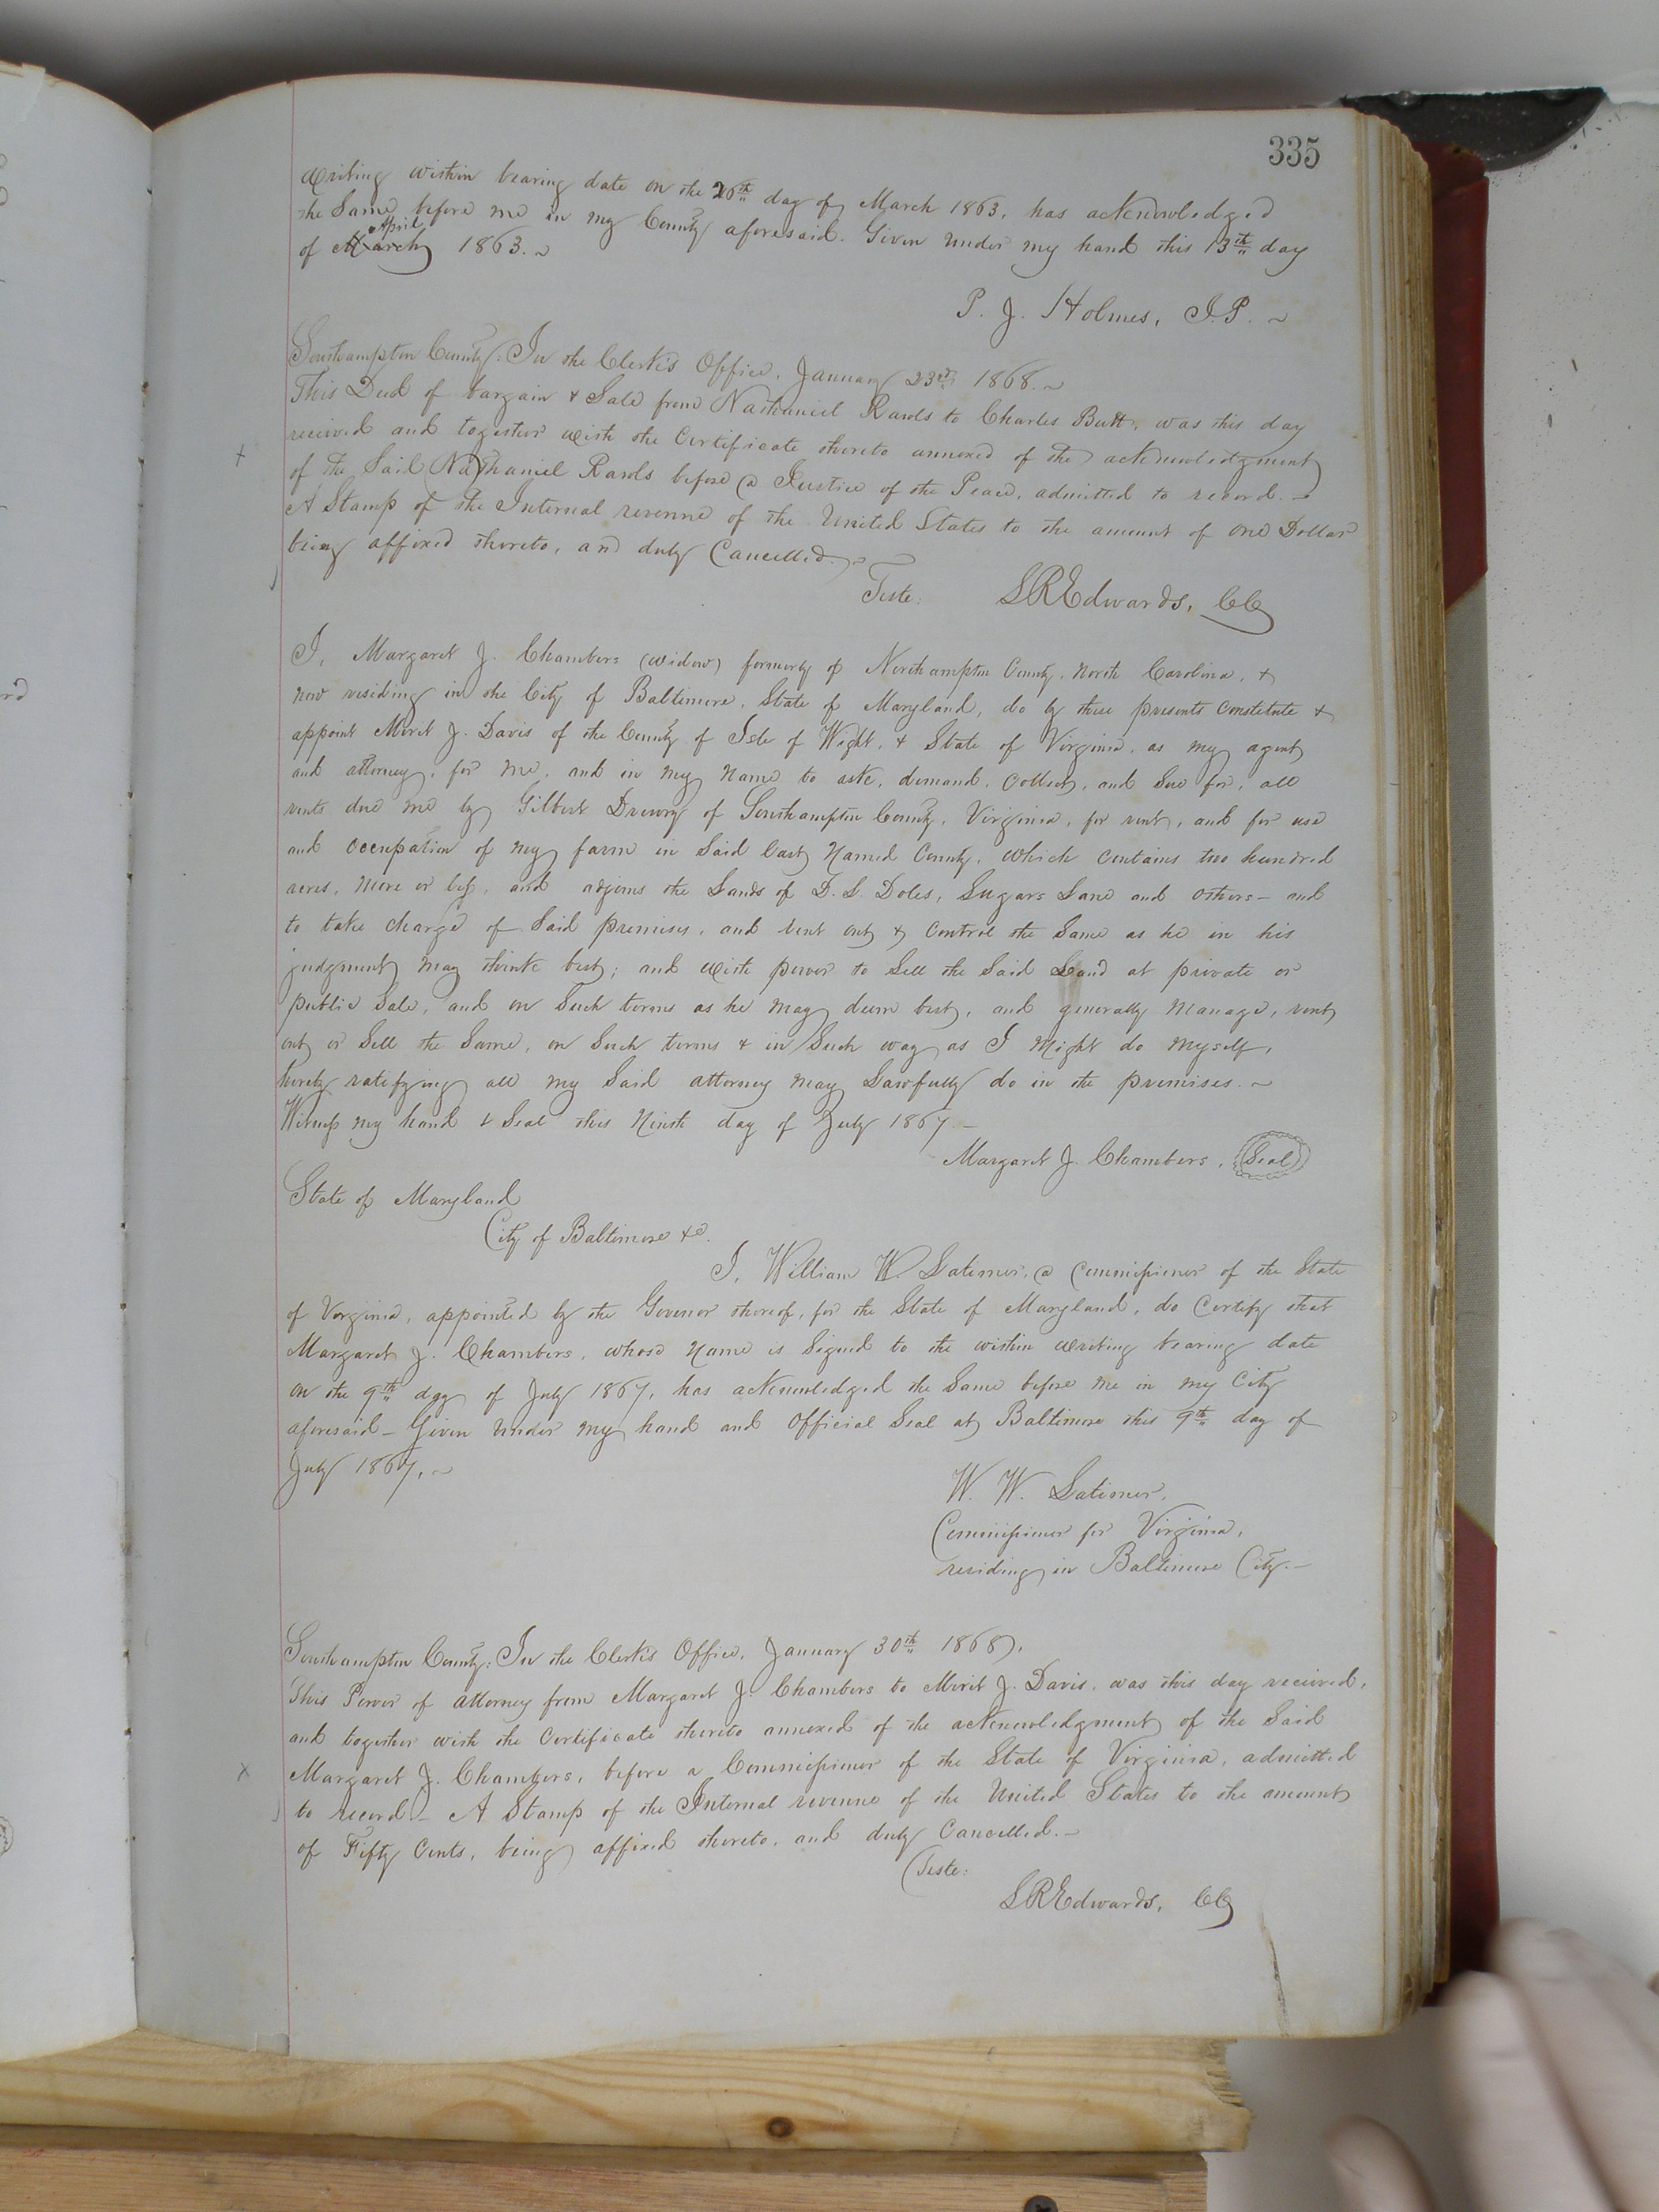 335
writing within bearing date on the 20th day of March 1863, has acknowledged
the same before me in my County aforesaid. Given under my hand this 13th day
April
of March 1863.~
P. J. Holmes, J.P. ~
Southampton County: In the Clerk's Office, January 23rd 1868.~
This Deed of bargain & Sale from Nathaniel Rawls to Charles Butt, was this day
received and together with the Certificate thereto annexed of the acknowledgment
of the Said Nathaniel Rawls before a Justice of the Peace, admitted to record. ~
A Stamp of the Internal revenue of the United States to the amount of one Dollar
being affixed thereto, and duly Cancelled. ~
Teste: L R Edwards, CC
I, Margaret J. Chambers (widow) formerly of Northampton County, North Carolina, &
now residing in the City of Baltimore, State of Maryland, do by these presents constitute &
appoint Merit J. Davis of the County of Isle of Wight, & State of Virginia, as my agent
and attorney, for me, and in my name to ask, demand, collect, and sue for, all
rents due me by Gilbert Drewry of Southampton County, Virginia, for rent, and for use
and occupation of my farm in Said last named County, which contains two hundred
acres, more or less, and adjoins the Lands of D. S. Doles, Sugars Lane and others - and
to take charge of Said premises, and rent out & control the Same as he in his
judgment may think best; and with power to Sell the Said Land at private or
public Sale, and on Such terms as he may deem best, and generally manage, rent
out or Sell the Same, on Such terms & in Such way as I might do myself,
hereby ratifying all my Said attorney may Lawfully do in the premises. ~
Witness my hand & Seal this Ninth day of July 1867. -
Margaret J. Chambers, (Seal)
State of Maryland
City of Baltimore &c.
I, William W. Latimer, a Commissioner of the State
of Virginia, appointed by the Govenor thereof, for the State of Maryland, do Certify that
Margaret J. Chambers, whose name is Signed to the within writing bearing date
on the 9th day of July 1867, has acknowledged the Same before me in my City
aforesaid - Given under my hand and Official Seal at Baltimore this 9th day of
July 1867. ~
W. W. Latimer,
Commissioner for Virginia,
residing in Baltimore City. -
Southampton County: In the Clerk's Office, January 30th 1868.
This Power of attorney from Margaret J. Chambers to Merit J. Davis, was this day received,
and together with the Certificate thereto annexed of the acknowledgment of the Said
Margaret J. Chambers, before a Commissioner of the State of Virginia, admitted
to record - A Stamp of the Internal revenue of the United States to the amount
of Fifty Cents, being affixed thereto, and duly Cancelled. -
Teste:
L R Edwards, CC